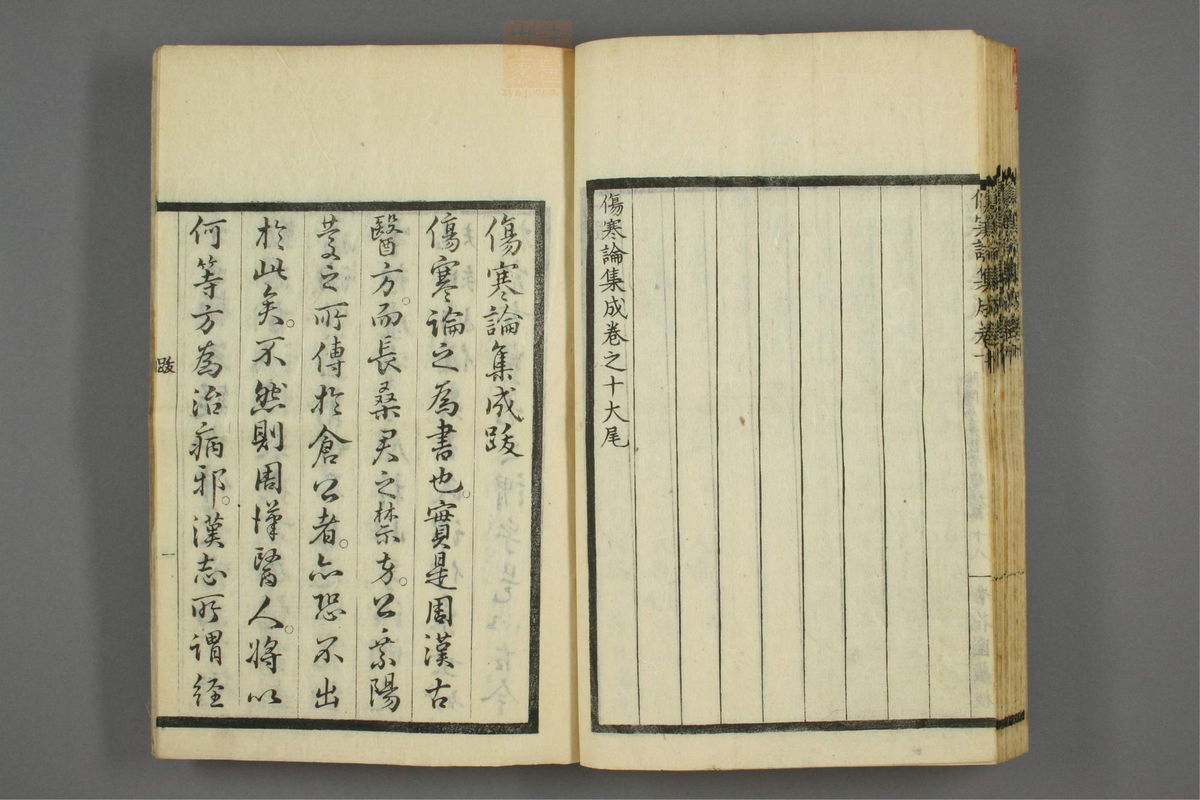 傷寒論集成卷十
傷寒論集成卷之十大尾
傷寒論集成跋
傷寒論之為書也。實是周漢古
醫方。而長桑君之禁方。公乘陽
慶之所傳於倉公者。亦恐不出
於此矣。不然則周漢醫人。將以
何等方為治病邪。漢志所謂经
跋
一